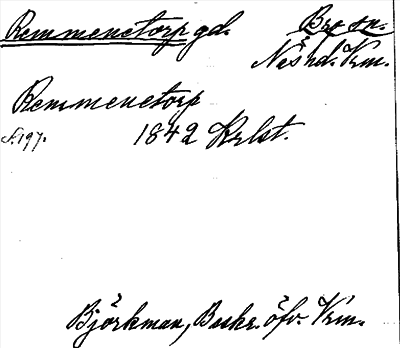 Remmenetorp gd. Bro sn.
Näs hd. Vrm.
Remmenetorp
s. 197. 1842 Krlst.
Björkman, Beskr. öfv. Vrm.